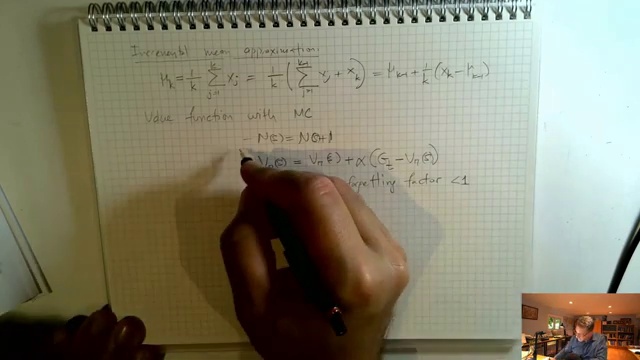 Incremental mean approximation:
μ_k = 1/k ∑_{j=1}^{k} x_j = 1/k ( ∑_{j=1}^{k-1} x_j + x_k ) = μ_{k-1} + 1/k (x_k - μ_{k-1})
Value function with MC
- N(s) = N(s)+1
V_π(s) = V_π(s) + α (G_t - V_π(s))
forgetting factor <1